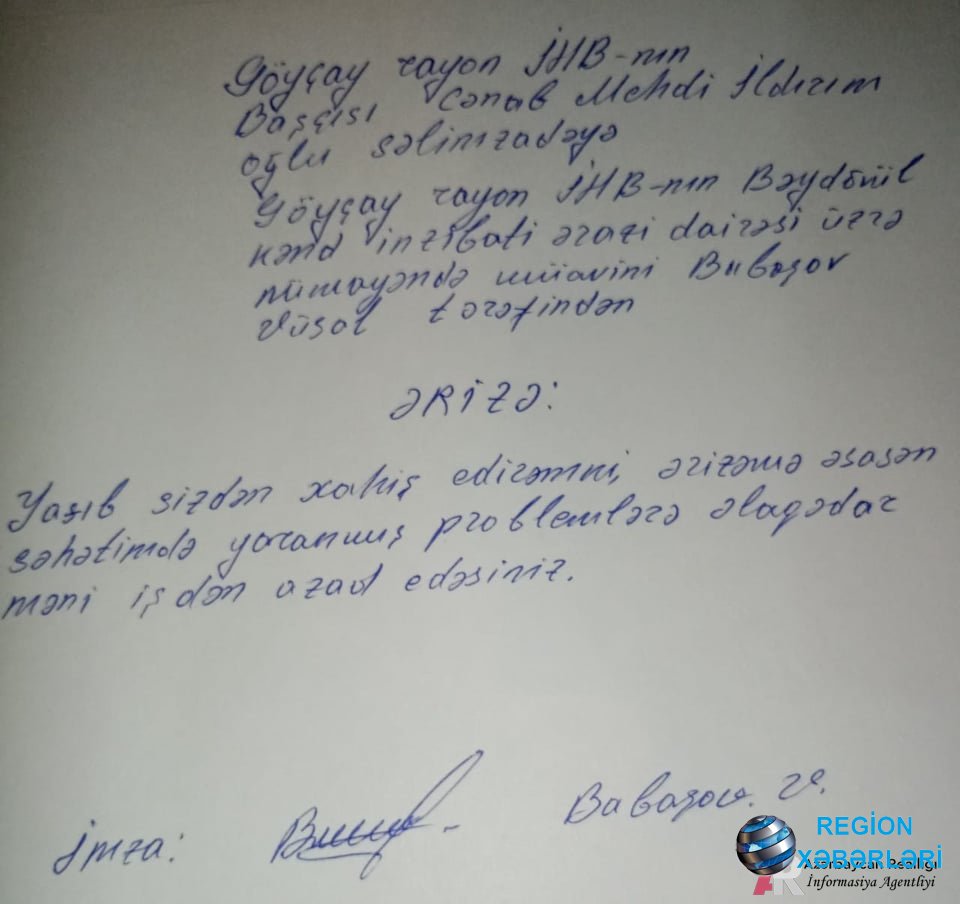 Göyçay rayon İHB-nın
Başçısı Cənab Mehdi İldırım
oğlu Səlimzadəyə
Göyçay rayon İHB-nın Bəydövül
kənd inzibati ərazi dairəsi üzrə
nümayəndə müavini Babaşov
Vüsal tərəfindən
ƏRİZƏ:
Yazıb sizdən xahiş edirəmni, ərizəmə əsasən
səhətimdə yaranmış problemlərə əlaqədar
məni işdən azad edəsiniz.
İmza: Babaşov. V.
REGİON
XƏBƏRLƏRİ
Azərbaycan Reallığı
İnformasiya Agentliyi